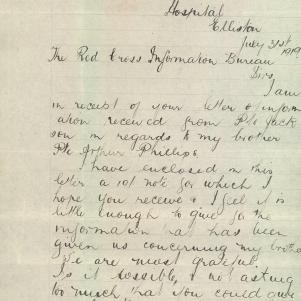 Hospital
Elliston
July 31st 1919
The Red Cross Information Bureau
Sirs
I am
in receipt of your letter & inform
ation received from Pte Jack
son in regards to my brother
Pte Arthur Phillips.
I have enclosed in this
letter a 10/ note for which I
hope you receive & I feel it is
little enough to give for the
information that has been
given us concerning my brother
We are most grateful.
Is it possible, & not asking
too much, that you could give